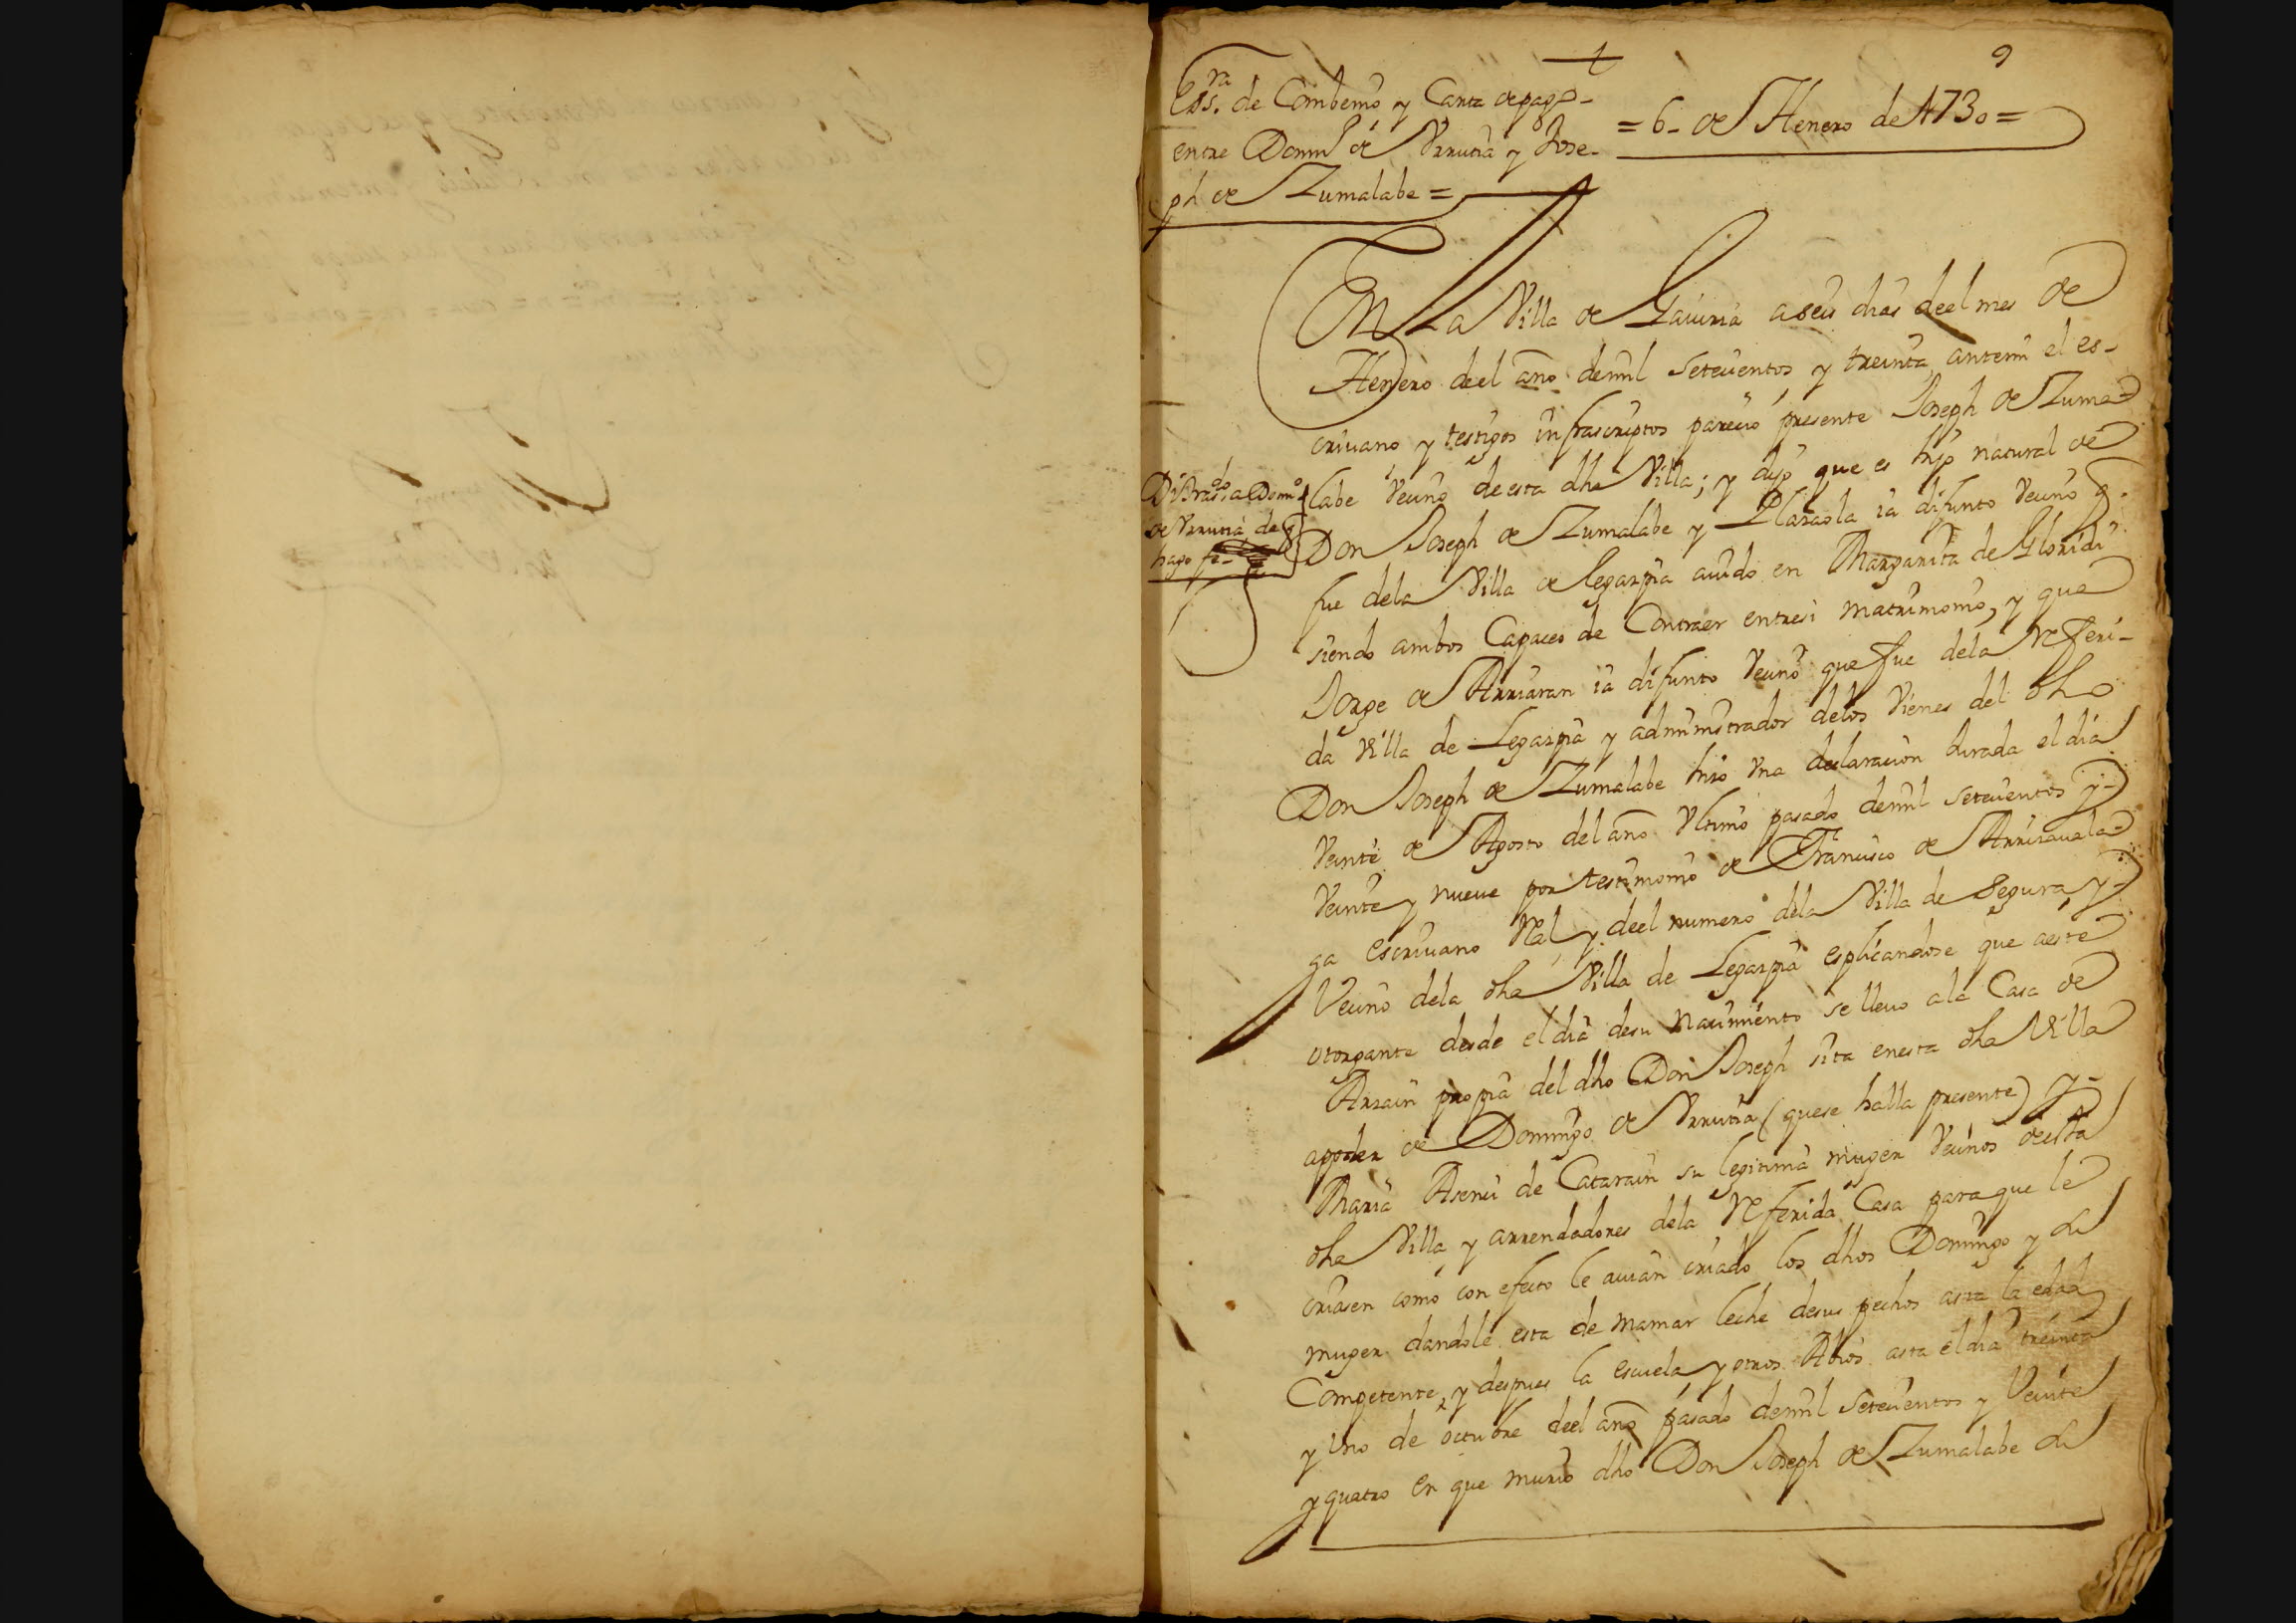 9
Ess.ra de Combenio y Carta de pago -
entre Dom.º de Vrrutia y Jose-
ph de Zumalabe =
= 6 - de Henero de 1730 =
En La Villa de Gaviria a seis dias deel mes de
Henero deel año de mil setecientos y treinta, antemi el es-
crivano y testigos infrascriptos parecio presente Joseph de Zuma-
labe Vecino de esta dha Villa; y dijo que es hijo natural de
Don Joseph de Zumalabe y Plazaola ia difunto Vecino q.
fue dela Villa de Legarpia auido en Margarita de Gloridi
siendo ambos Capaces de Contraer entresi matrimonio, y que
Jorge de Arriaran ia difunto Vecino que fue dela Referi-
da Villa de Legarpia y administrador delos Vienes del dho
Don Joseph de Zumalabe hizo Vna declaracion Jurada el dia
Veinte de Agosto del año Vltimo pasado demil setecientos y
Veinte y nueve por testimonio de Francisco de Arrizavala-
ga escrivano Real y deel numero dela Villa de Segura, y
Vecino dela dha Villa de Legarpia esplicandose que aeste
otorgante desde el dia desu Nacimiento se lleuo ala Casa de
Arrain propia del dho Don Joseph sita enesta dha Villa
apoder de Domingo de Vrrutia (quese halla presente) y
Maria Asenci de Catarain su legitima muger Vecinos desta
dha Villa, y arrendadores dela Referida Casa paraque le
criasen como con efecto le auian criado los dhos Domingo y su
muger dandole esta de mamar leche desus pechos asta la edad
Competente, y despues la escuela y otros Abios asta el dia treinta
y Vno de octubre deel año pasado demil setecientos y Veinte
y quatro en que murio dho Don Joseph de Zumalabe su
Di traslº a Domº
de Vrrutia, de q
hago fe -